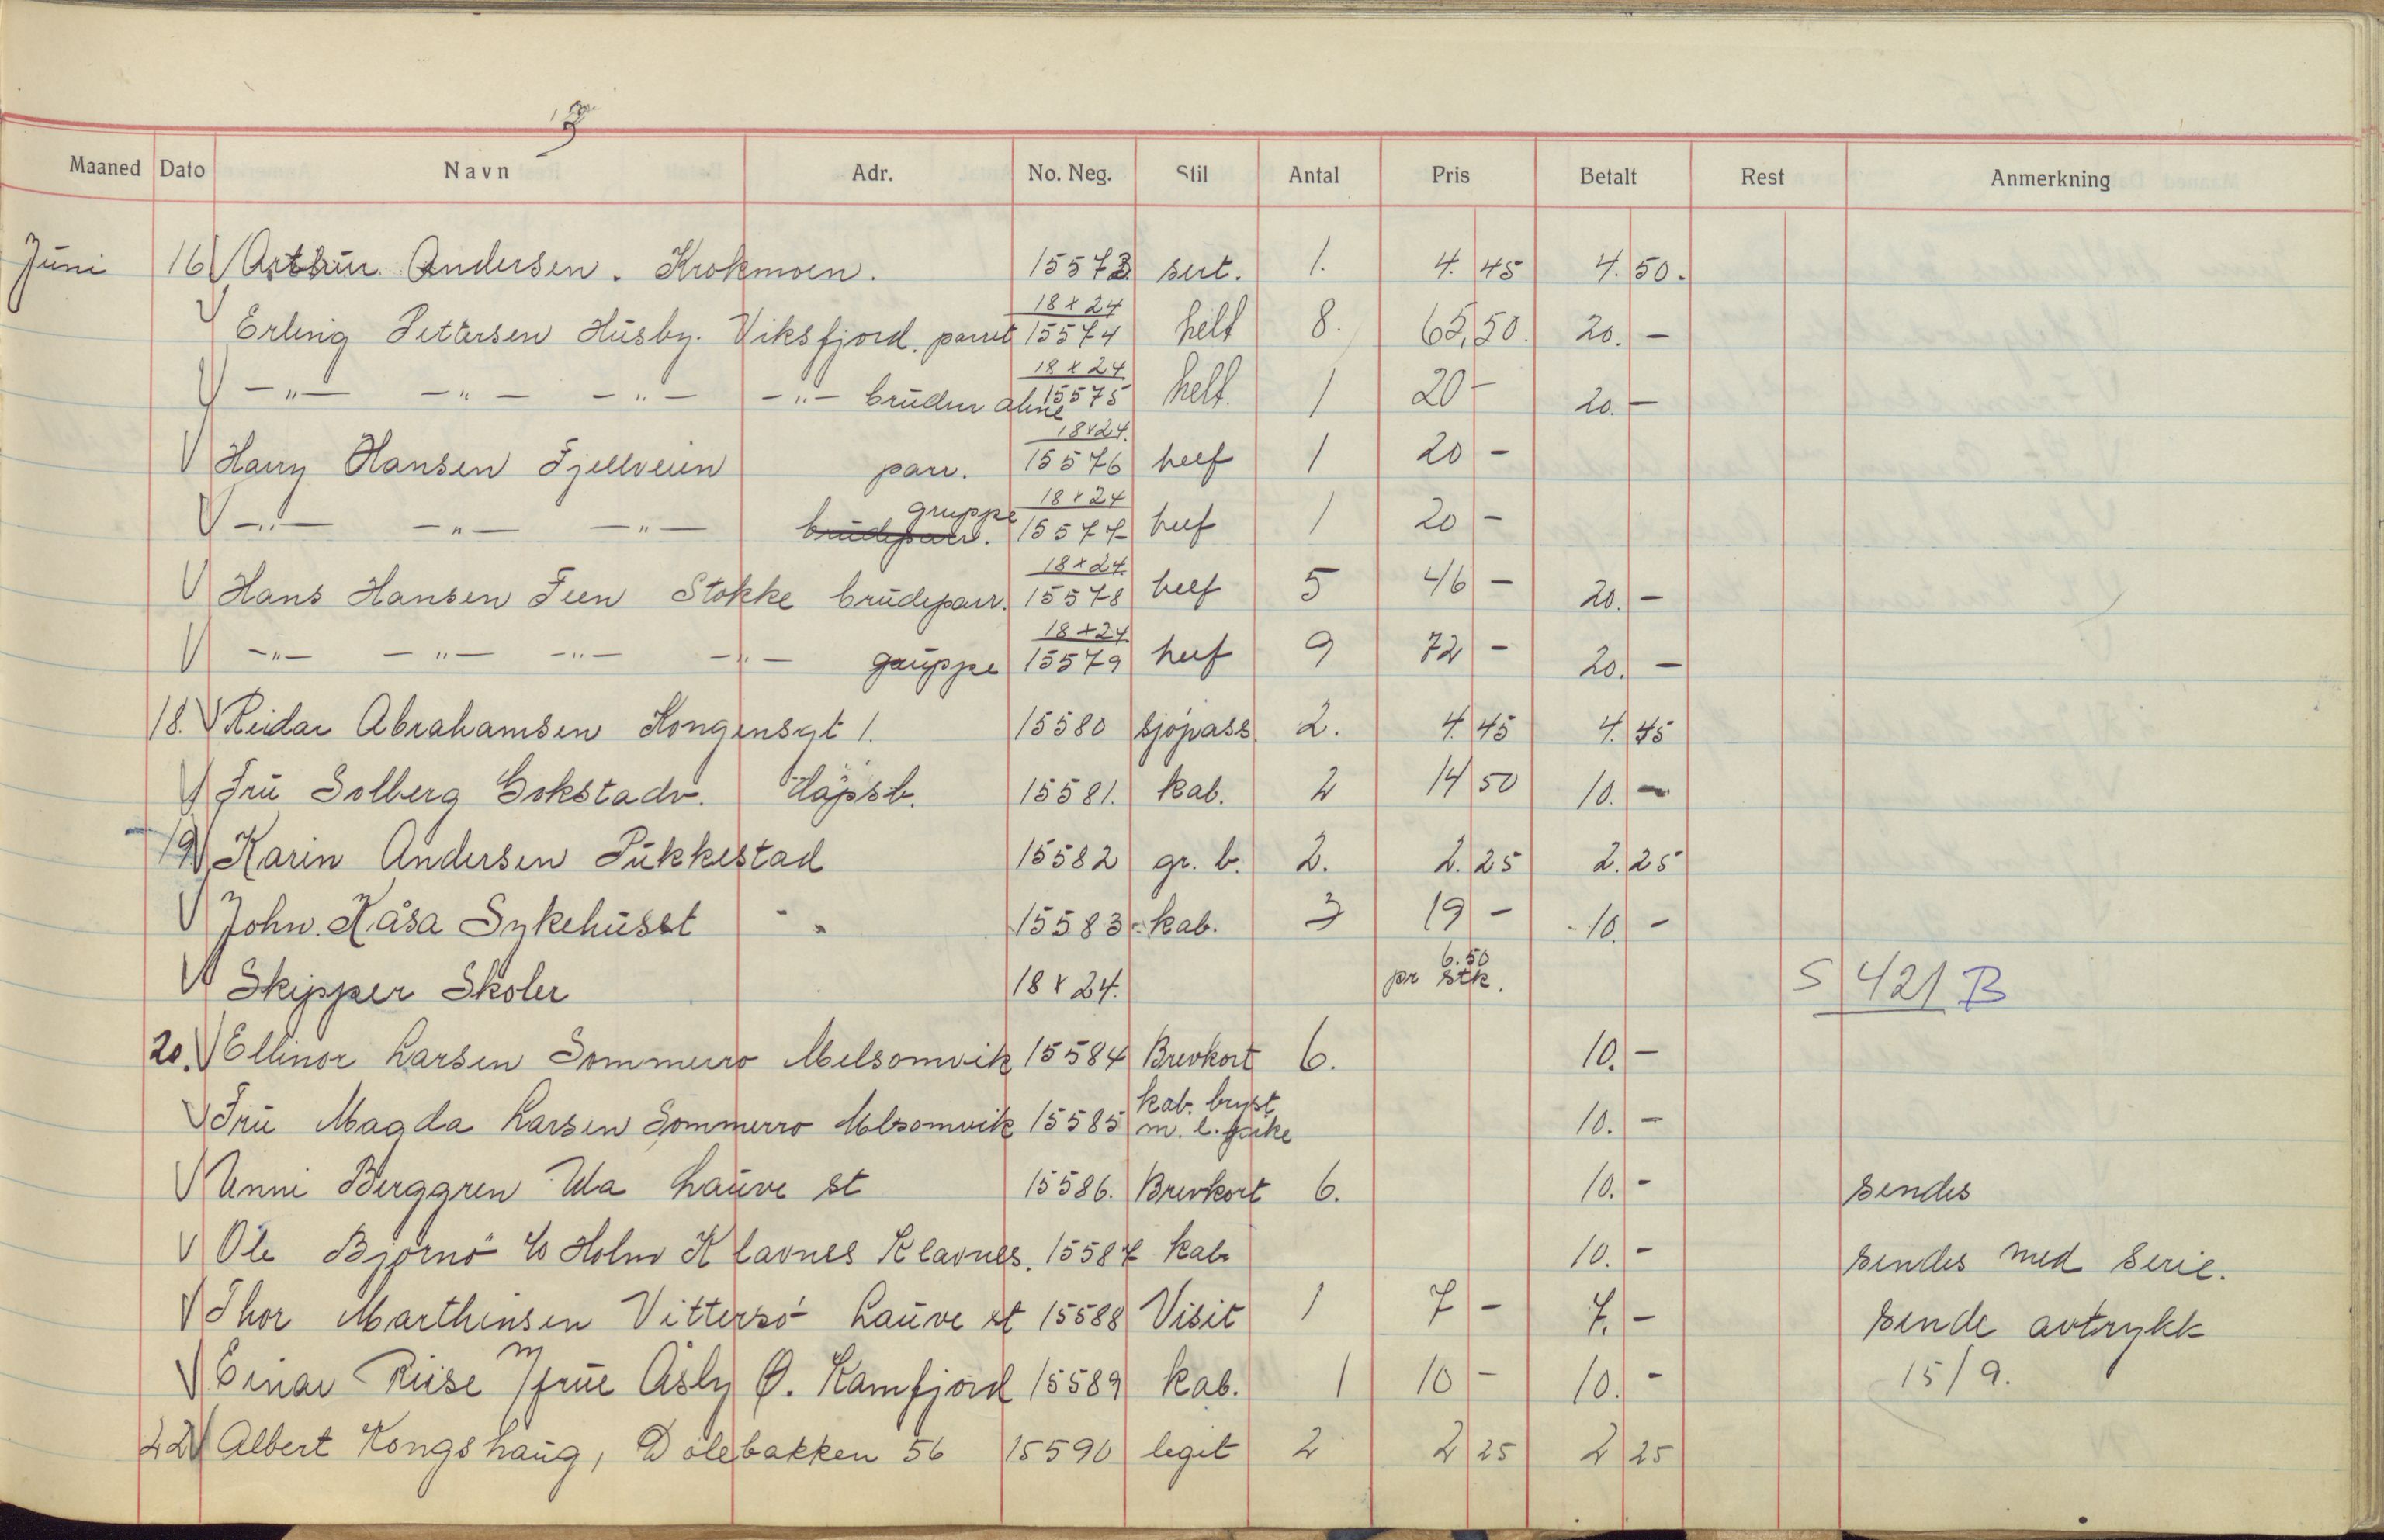 Maaned Dato Navn Adr. No. Neg. Stil Antal Pris Betalt Rest Anmerkning
Juni 16 V Arthur Andersen. Krokmoen. 15573 sert. 1. 4.45 4.50.
V Erling Pettersen Husby. Viksfjord. parret 18x24 15574 helt 8. 65,50. 20. -
V -"- -"- -"- -"- bruden alene 18x24 15575 helt. 1 20 - 20. -
V Harry Hansen Fjellveien parr. 18x24. 15576 helf 1 20 -
V -"- -"- -"- brudeparr. gruppe 18x24 15577 helf 1 20 -
V Hans Hansen Feen Stokke brudeparr. 18x24. 15578 helf 5 46 - 20. -
V -"- -"- -"- -"- gruppe 18x24. 15579 helf 9 72 - 20. -
18. V Reidar Abrahamsen Kongensgt 1. 15580 sjøpass. 2. 4.45 4.45
V Fru Solberg Gokstadv. 15581. kab. 2 14 50 10. -
19 V Karin Andersen Pukkestad 15582 gr. b. 2. 2.25 2.25
V John. Kåsa Sykehuset 15583 kab. 3 19 - 10. -
V Skipper Skolen 18x24. 6.50 pr stk. S 421 B
20. V Ellinor Larsen Sommerro Melsomvik 15584 Brevkort 6. 10. -
V Fru Magda Larsen Sommerro Melsomvik 15585 kab. bryst m. l. 10. -
V Unni Berggren Ula Lauve st 15586. Brevkort 6. 10. - sendes
V Ole Bjørnø c/o Holm Klavnes Klavnes. 15587 kab. 10. - sendes med serie.
V Thor Marthinsen Vittersø Lauve st 15588 Visit 1 7 - 7. - sende avtrykk
V Einar Riise m/frue Åsly Ø. Kamfjord 15589 kab. 1 10 - 10. - 15/9.
22 V Albert Kongshaug, Dølebakken 56 15590 legit 2 2 25 2 25